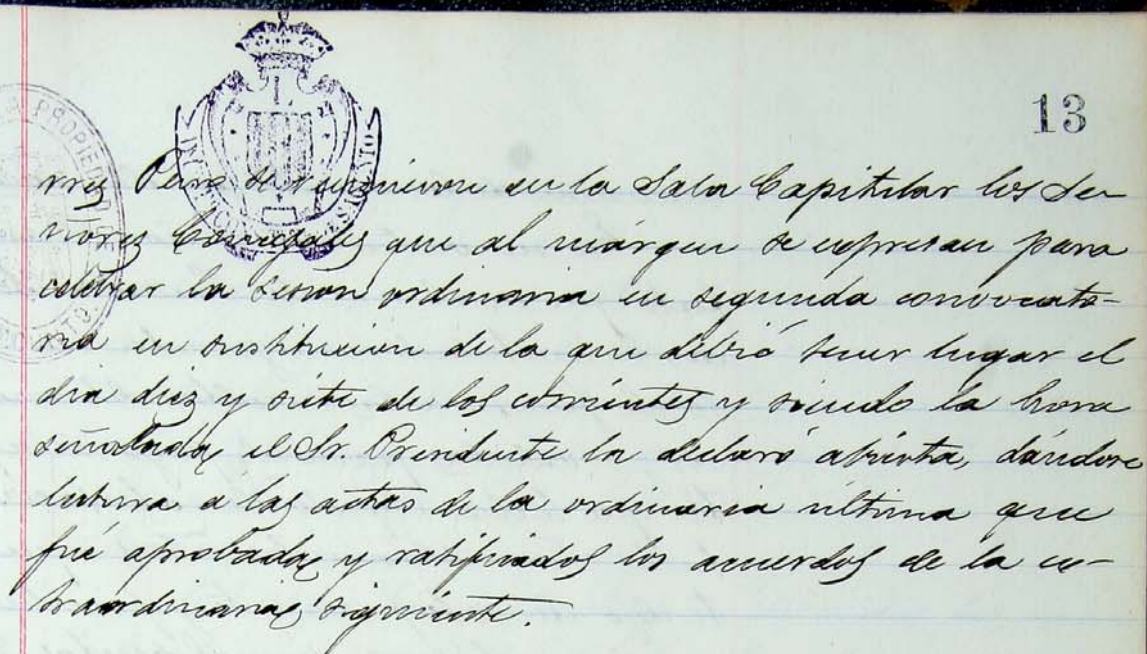 13
rres Pera se reunieron en la Sala Capitular los Se-
ñores Concejales que al márgen se expresan para
celebrar la sesion ordinaria en segunda convocato-
ria en sustitucion de la que debió tener lugar el
dia diez y siete de los corrientes y siendo la hora
señalada, el Sr. Presidente la declaró abierta, dándose
lectura a las actas de la ordinaria última que
fué aprobada, y ratificados los acuerdos de la es-
traordinaria siguiente.